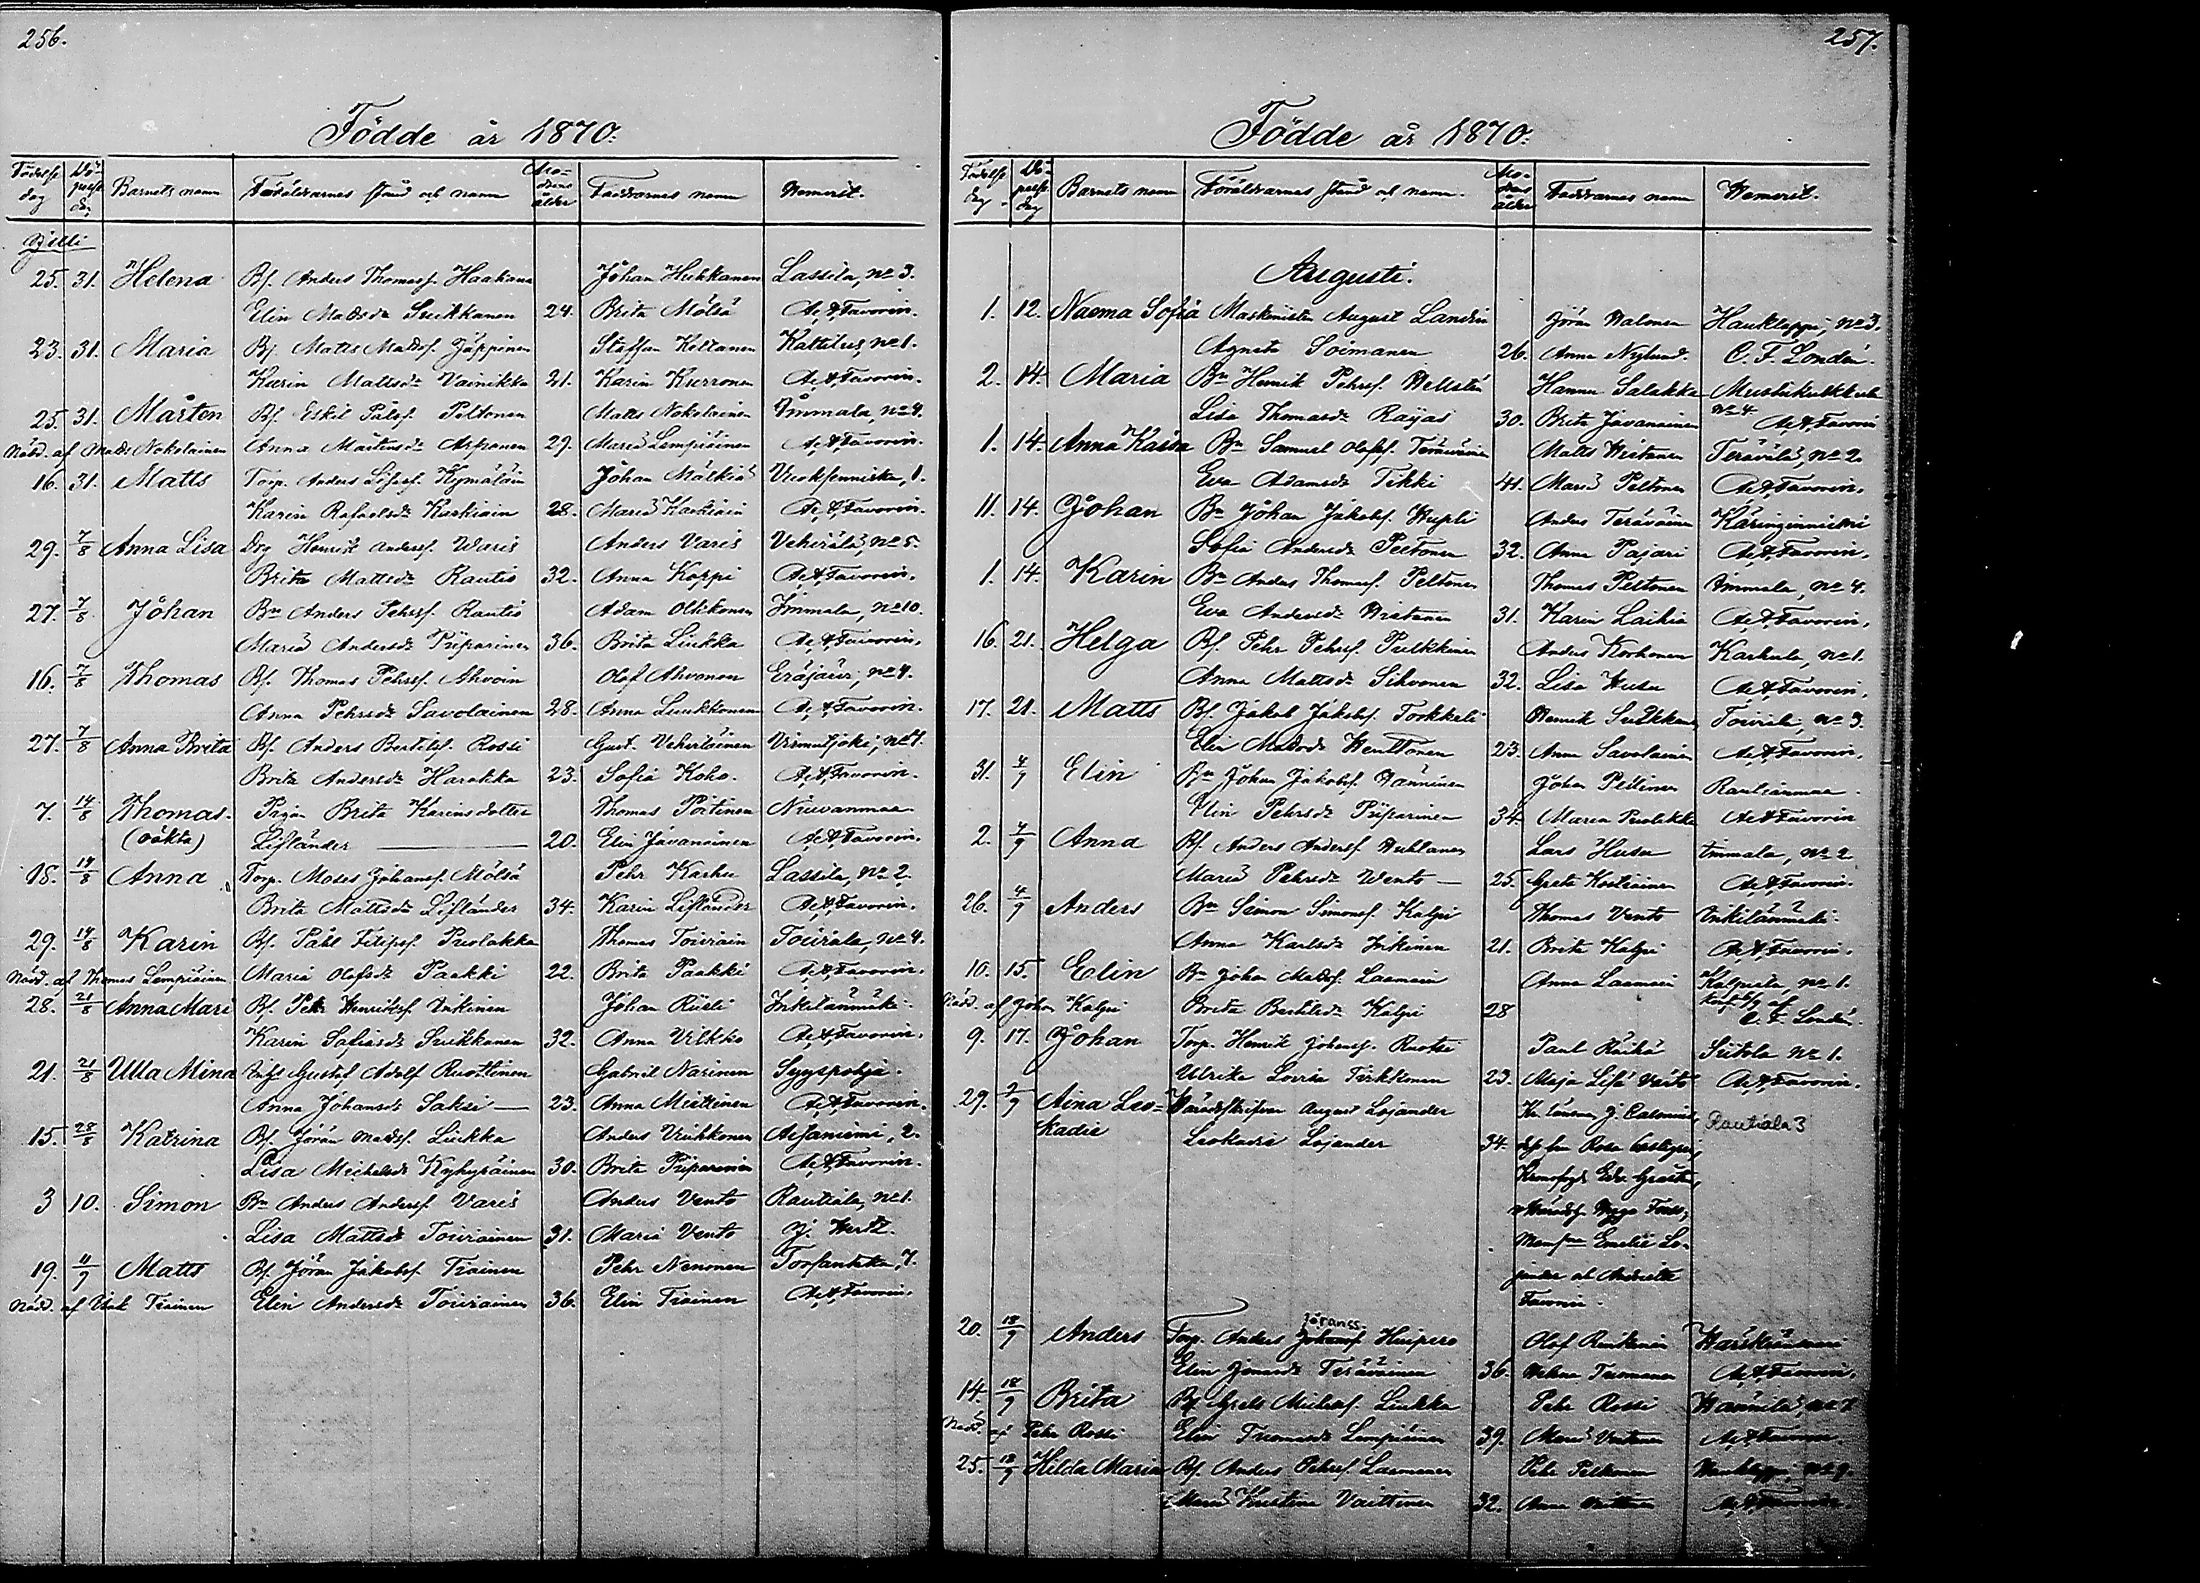 256.
Födde år 1870.
Födelse dag Döpelse dag Barnets namn Föräldrarnes stånd och namn Modrens ålder Faddrarnes namn Hemort.
Julii
25. 31. Helena Bf. Anders Thomasf. Haakana Johan Hukkanen Lassila, no 3.
Elin Matsdr Suikkanen 24. Brita Mölsä A. A. Favorin.
23. 31. Maria Bf. Matts Mattsf. Jäppinen Staffan Koltanen Kattilus, no 1.
Karin Mattsdr Vainikka 21. Karin Kurronen A. A. Favorin.
25. 31. Mårten Bf. Eskil Pålsf. Peltonen Matts Nokelainen Immala, no 4.
Nöd. af Matts Nokelainen Anna Mårtensdr Asponen 29. Maria Lempiäinen A. A. Favorin.
16. 31. Matts Torp. Anders Kymäläin Johan Mälkiä Vuoksenniska, 1.
Karin Rafaelsdr Karkiain 28. Maria Karkiain A. A. Favorin.
29. 7/8 Anna Lisa Drg Henrik Andersf. Waris Anders Varis Vehvilä, no 5.
Brita Mattsdr Rautio 32. Anna Koppi A. A. Favorin.
27. 7/8 Johan Bn Anders Pehrsf. Rautio Adam Ollikonen Immala, no 10.
Maria Andersdr Piiparinen 36. Brita Liukka A. A. Favorin.
16. 7/8 Thomas Bf. Thomas Pehrsf. Ahvoin Olof Ahvonen Eräjärv, no 4.
Anna Pehrsdr Savolainen 28. Anna Luukkonen A. A. Favorin.
27. 7/8 Anna Brita Bf. Anders Bertilsf. Rossi Gust. Vehviläinen Virmutjoki, no 7.
Brita Andersdr Harakka 23. Sofia Koho. A. A. Favorin.
7. 14/8 Thomas. Pigan Brita Karinsdotter Thomas Pöitinen Niuvanmaa
(oäkta) Lifländer 20. Elin Javanainen A. A. Favorin.
18. 14/8 Anna Torp. Moses Johansf. Mölsä Pehr Karhu Lassila, no 2.
Brita Mattsdr Lifländer 34. Karin Lifländer A. A. Favorin.
29. 14/8 Karin Bf. Påhl Filipsf. Puolakka Thomas Toivain Toivala, no 4.
Nöd. af Thomas Lempiäinen Maria Olofsdr Paakki 22. Brita Paakki A. A. Favorin.
28. 21/8 Anna Mari Bf. Pehr Henriksf. Inkinen Johan Rusli Inkilänmäki.
Karin Sofiasdr Suikkanen 32. Anna Vilkko A. A. Favorin.
21. 21/8 Ulla Mina Inhs Gustaf Adolf Ruottinen Gabriel Narinen Syyspohja.
Anna Johansdr Saksi 23. Anna Miettinen A. A. Favorin.
15. 28/8 Katrina Bf. Jöran Mattsf. Liukka Anders Vuikkonen Äitsaniemi, 2.
Lisa Michelsdr Kyhyräinen 30. Brita Piiparinen A. A. Favorin.
3 10. Simon Bn Anders Andersf. Varis Anders Vento Rautiala, no 1.
Lisa Mattsdr Toivainen 31. Maria Vento J. Hertz.
19. 11/9 Matts Bf. Jöran Jakobsf. Tiainen Pehr Nenonen Torsantaka, 7.
Nöd. af Tiainen Elin Andersdr Toivainen 36. Elin Tiainen A. A. Favorin.
257.
Födde år 1870.
Födelse dag Döpelse dag Barnets namn Föräldrarnes stånd och namn. Modrens ålder Faddrarnes namn Hemort.
Augusti.
1. 12. Naema Sofia Maskinisten August Landin Jöran Halonen Hauklappi, no 3.
Agneta Soimanen 26. Anna Nylund. C. F. Londén.
2. 14. Maria Bn Henrik Pehrsf. Hellstén Hannu Salakka Mustikukkula no 4
Lisa Thomasdr Rajas 30. Brita Javanainen A. A. Favorin
1. 14. Anna Kaisa Bn Samuel Olofsf. Teräväinen Matts Hietanen Terävälä, no 2.
Eva Adamsdr Tikki 41. Maria Peltonen A. A. Favorin.
11. 14. Johan Bn Johan Jakobsf. Hupli Anders Teräväinen Käringinniemi
Sofia Andersdr Peltonen 32. Anna Pajari A. A. Favorin.
1. 14. Karin Bn Anders Thomasf. Peltonen Thomas Peltonen Immala, no 4.
Eva Andersdr Hietanen 31. Karin Laihia A. A. Favorin.
16. 21. Helga Bf. Pehr Pehrsf. Pulkkinen Anders Korhonen Karhula, no 1.
Anna Mattsdr Sihvonen 32. Lisa Husu A. A. Favorin.
17. 21. Matts Bf. Jakob Jakobsf. Torkkeli Henrik Suikkanen Toivala, no 3.
Elin Matsdr Henttonen 23. Anna Savolainen A. A. Favorin.
31. 4/9 Elin Bn Johan Jakobsf. Hänninen Johan Pellinen Rautianmaa.
Elin Pehrsdr Piiparinen 34. Maria Puolakka A. A. Favorin
2. 4/9 Anna Bf. Anders Andersf. Huhtanen Lars Husu Immala, no 2.
Maria Pehrsdr Vento 25. Greta Kostiainen A. A. Favorin.
26. 4/9 Anders Bn Simon Simonsf. Kalpi Thomas Vento Inkilänmäki.
Anna Karlsdr Inkinen 21. Brita Kalpi A. A. Favorin.
10. 15. Elin Bn Johan Matsf. Laamain Anna Laamain Kalpiala, no 1.
Nöd. af Johan Kalpi Brita Bertilsdr Kalpi 28 af C. F. Londén.
9. 17. Johan Torp. Henrik Johansf. Ruotsi Paul Räihä Siitola no 1.
Ulrika Lovisa Pirkkonen 23. Maja Lisa A. A. Favorin.
29. 2/9 Aina Leo- Häradsskrifvare August Lojander J. Calonius, Rautiala 3
kadie Leokadie Lojander 34. fru Rosa
Kronofogd. Edv.
Emelie Lo-
jander och
Favorin.
20. 18/9 Anders Torp. Anders Johansf. Jöranss. Huipero Olof Reukkonen
Elin Jonasdr Teräväinen 36. Helena Tuomanen A. A. Favorin.
14. 18/9 Brita Bf. Grels Michelsf. Liukka Pehr Rossi Hannila, no 7
Nöd. af Pehr Rossi Elin Tuomasdr Lempiäinen 39. Maria A. A. Favorin.
25. 18/9 Hilda Maria Bf. Anders Pehrsf. Laamanen Pehr Pelkonen Hauklappi, no 9.
Maria Kristina Vaittinen 32. Anna A. A. Favorin.